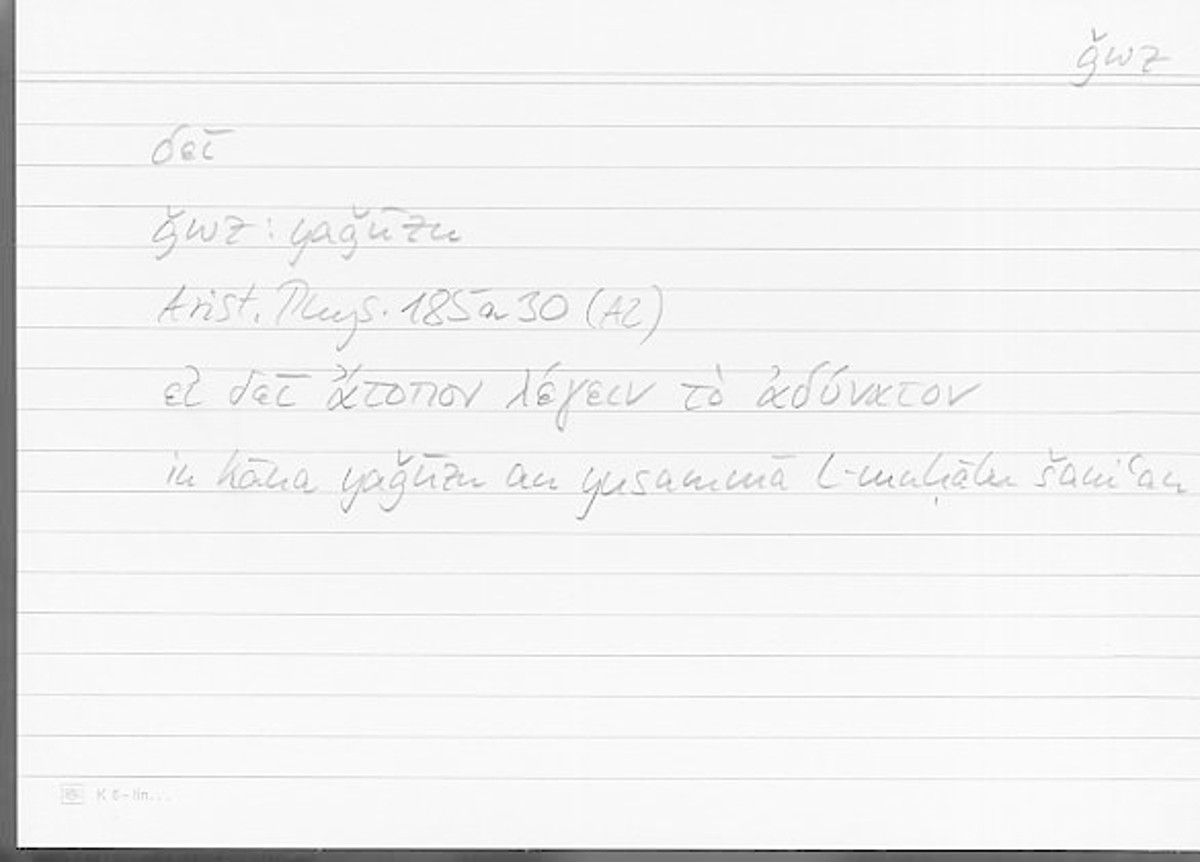 ǧwz
δεῖ
ǧwz: yaǧūzu
Arist. Phys. 185a30 (A2)
εἰ δεῖ ἄτοπον λέγειν τὸ ἀδύνατον
in kāna yaǧūzu an yusammā l-muḥālu šaniʿan
K 6-lin...